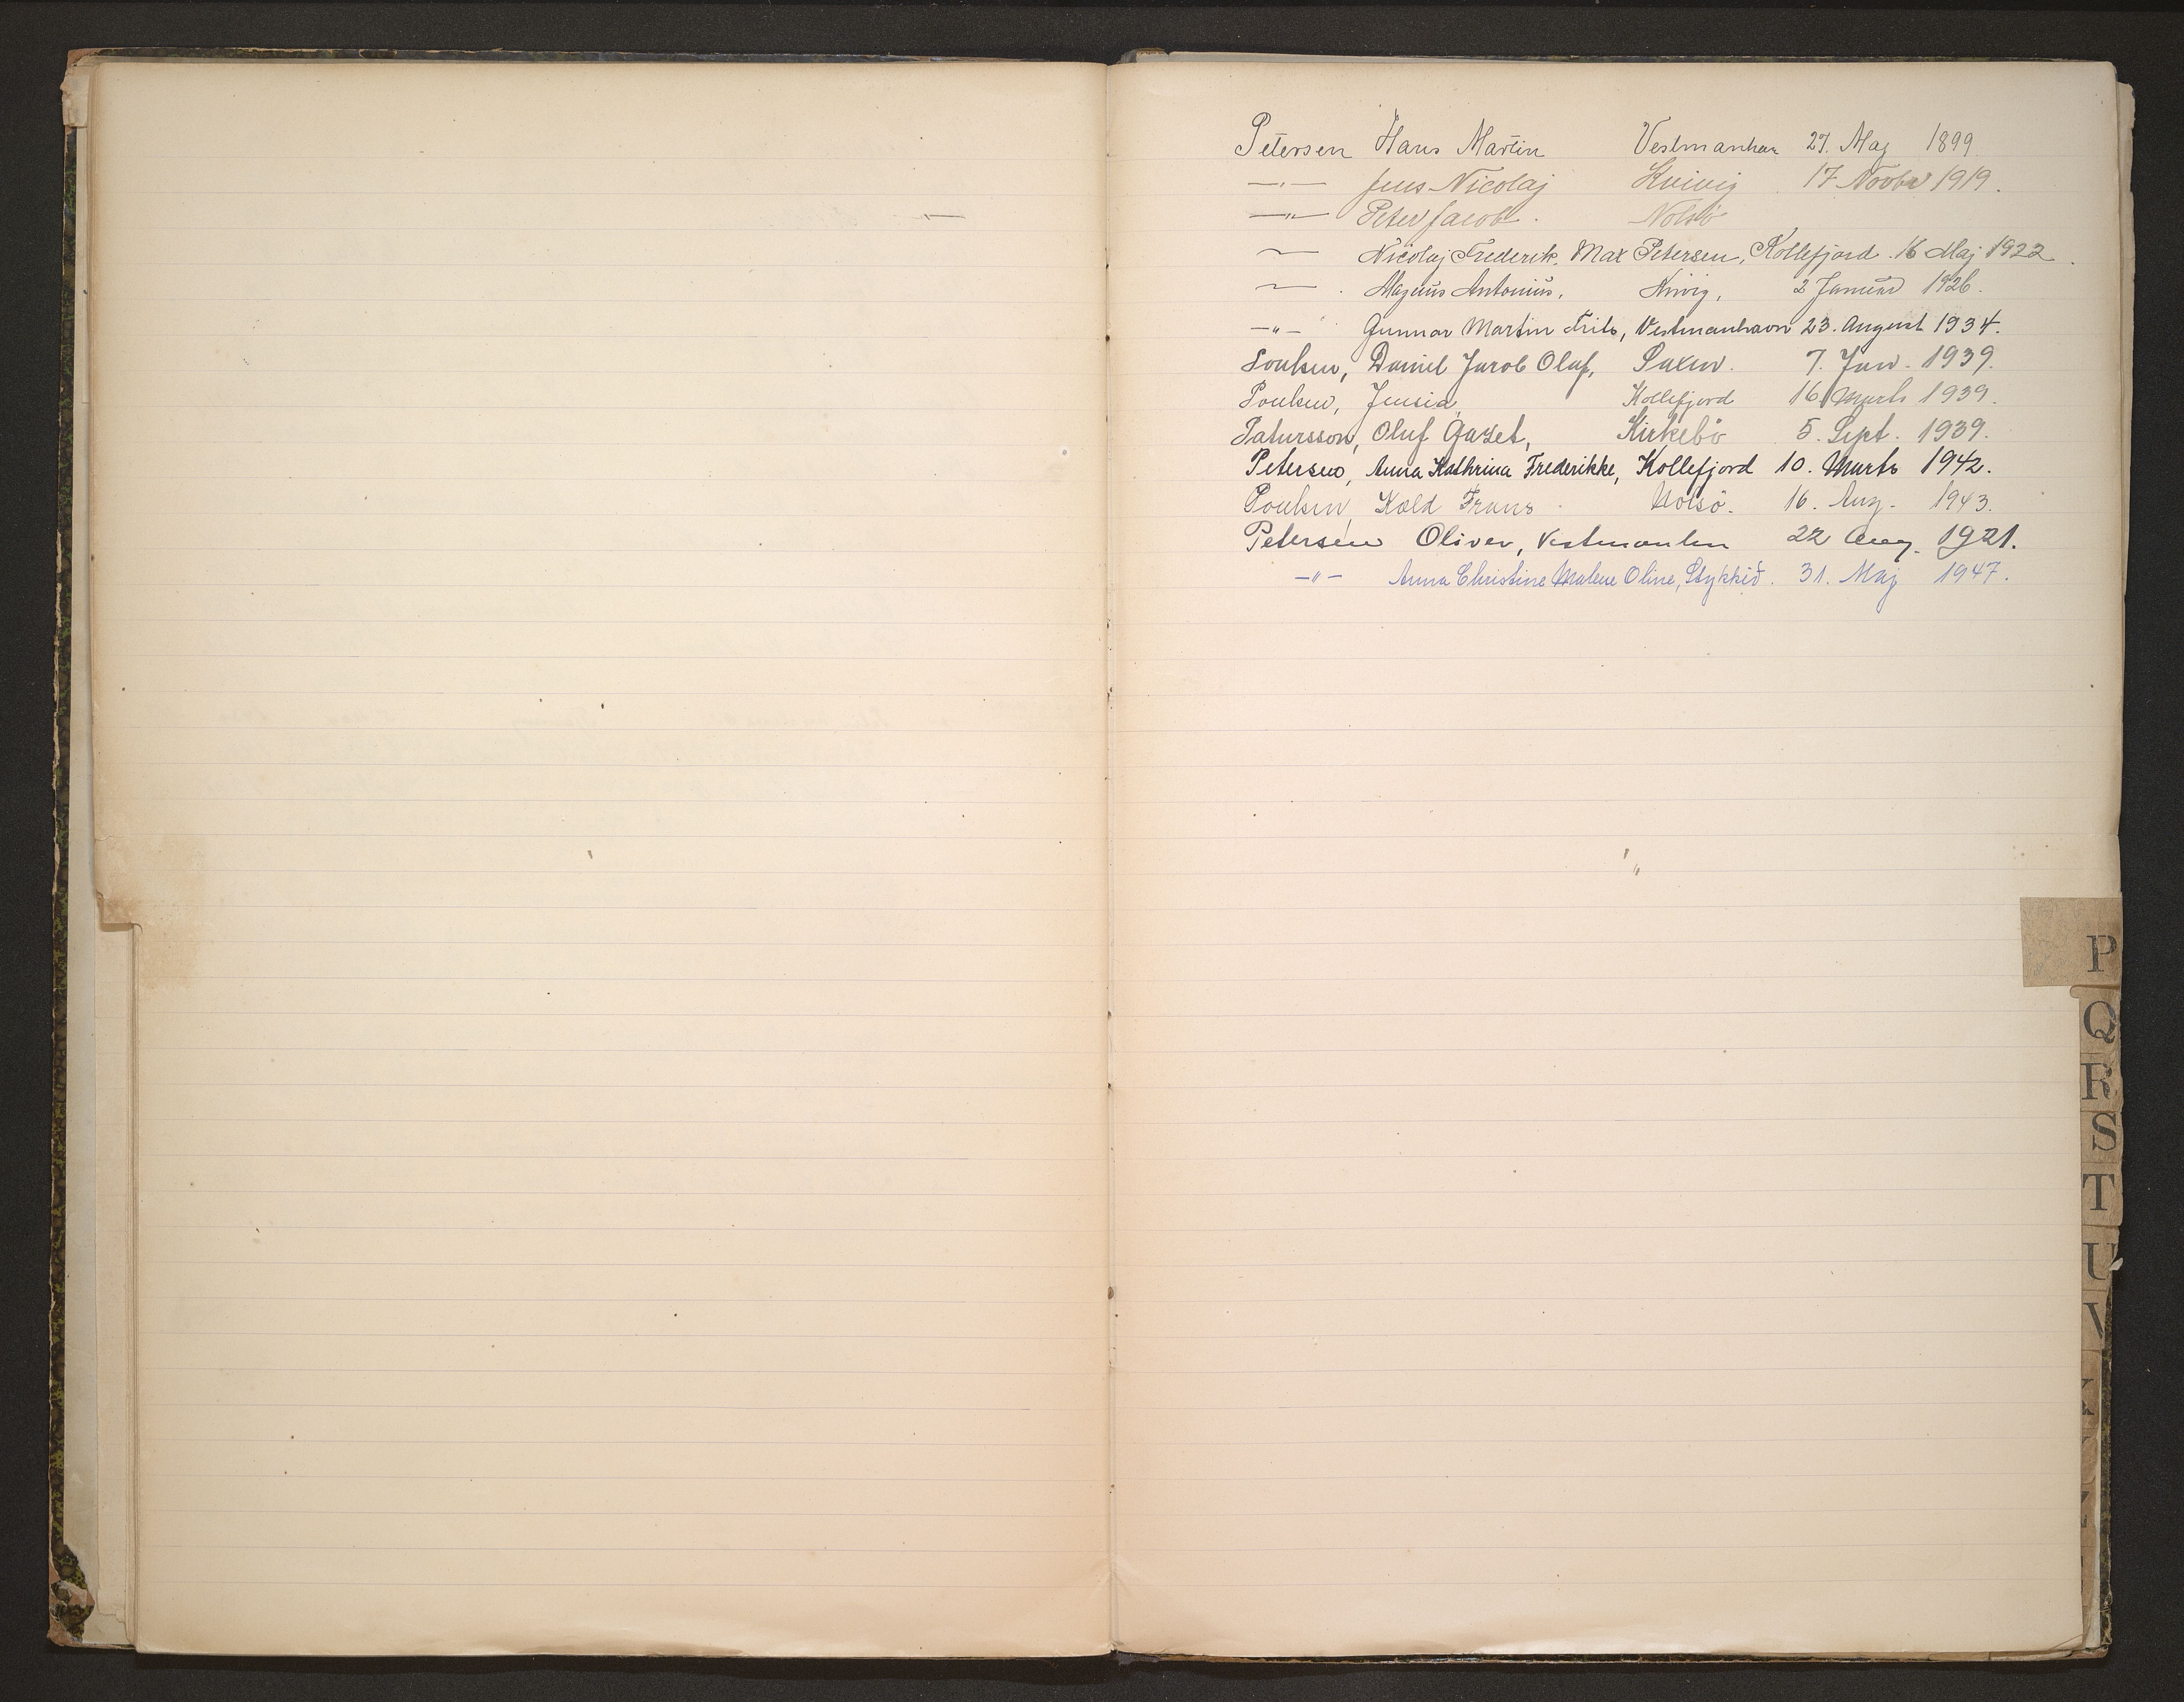 Petersen Hans Martin Vestmanhan 27. Maj 1899
—„— Jens Nicolaj Kvivig 17 Novbr 1919.
—„— Peter Jacob. Nolsö
— Nicolaj Frederik Max Petersen, Kollefjord. 16 Maj 1922.
— Magnus Antonius, Kvivig, 2 Januar 1926.
—„— Gunnar Martin Frits, Vestmanhavn 23. August 1934.
Poulsen, Daniel Jacob Oluf, Saxen. 7. Jan. 1939.
Poulsen, Jensia Kollefjord 16 Marts 1939.
Patursson, Oluf Gazet, Kirkebö 5. Sept. 1939.
Petersen, Anna Kathrina Frederikke, Kollefjord 10. Marts 1942.
Poulsen, Kold Frans Nolsö. 16. Aug. 1943.
Petersen Oliver, Vestmanhn 22 Aug. 1921.
—„— Anna Christine Malene Oline, Stykkið. 31. Maj 1947.
P
Q
R
S
T
U
V